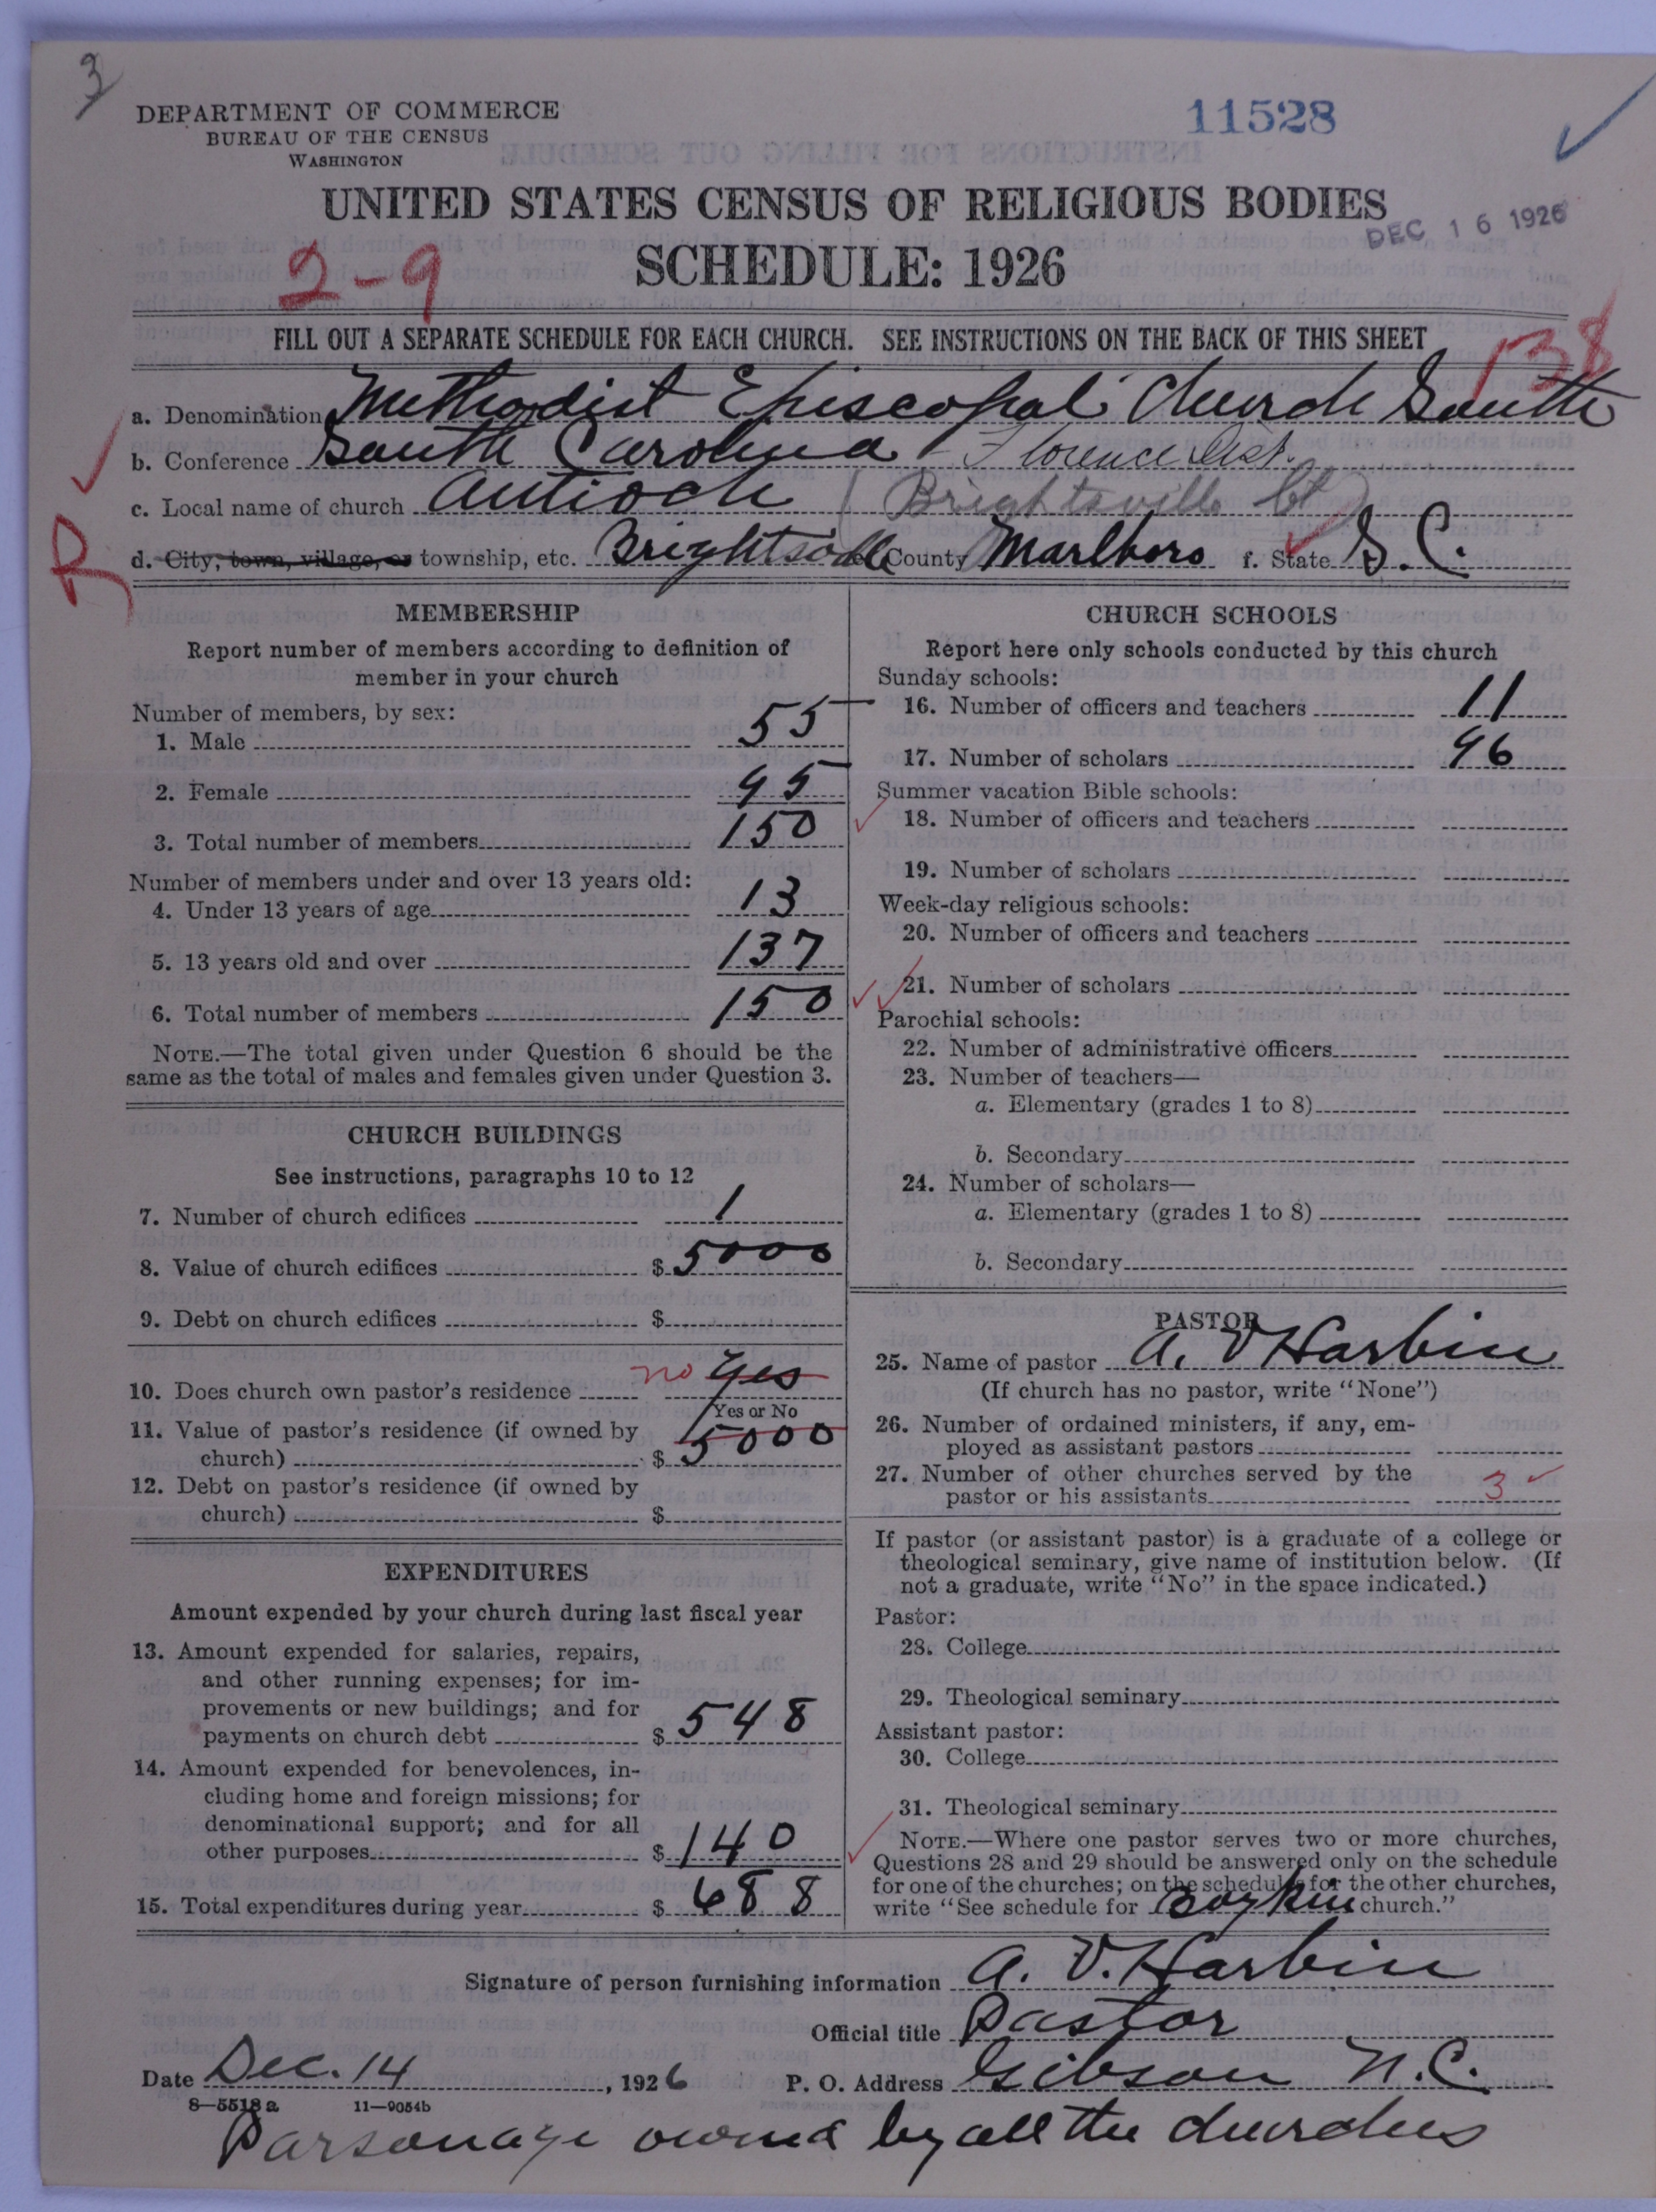 3
DEPARTMENT OF COMMERCE
BUREAU OF THE CENSUS
WASHINGTON
11528
UNITED STATES CENSUS OF RELIGIOUS BODIES
DEC 16 1926
2-9
SCHEDULE: 1926
FILL OUT A SEPARATE SCHEDULE FOR EACH CHURCH. SEE INSTRUCTIONS ON THE BACK OF THIS SHEET
138
a. Denomination Methodist Episcopal Church South
b. Conference South Carolina - Florence Dist.
c. Local name of church Antioch (Brightsville Ct)
R
d. City, town, village, or township, etc. Brightsville e. County Marlboro f. State S.C.
MEMBERSHIP
Report number of members according to definition of
member in your church
Number of members, by sex:
1. Male 55
2. Female 95
3. Total number of members 150
Number of members under and over 13 years old:
4. Under 13 years of age 13
5. 13 years old and over 137
6. Total number of members 150
NOTE.—The total given under Question 6 should be the
same as the total of males and females given under Question 3.
CHURCH BUILDINGS
See instructions, paragraphs 10 to 12
7. Number of church edifices 1
8. Value of church edifices $5000
9. Debt on church edifices $
10. Does church own pastor's residence no yes
Yes or No
11. Value of pastor's residence (if owned by
church) $5000
12. Debt on pastor's residence (if owned by
church) $
EXPENDITURES
Amount expended by your church during last fiscal year
13. Amount expended for salaries, repairs,
and other running expenses; for im-
provements or new buildings; and for
payments on church debt $548
14. Amount expended for benevolences, in-
cluding home and foreign missions; for
denominational support; and for all
other purposes $140
15. Total expenditures during year $688
CHURCH SCHOOLS
Report here only schools conducted by this church
Sunday schools:
16. Number of officers and teachers 11
17. Number of scholars 96
Summer vacation Bible schools:
18. Number of officers and teachers
19. Number of scholars
Week-day religious schools:
20. Number of officers and teachers
21. Number of scholars
Parochial schools:
22. Number of administrative officers
23. Number of teachers—
a. Elementary (grades 1 to 8)
b. Secondary
24. Number of scholars—
a. Elementary (grades 1 to 8)
b. Secondary
PASTOR
25. Name of pastor A. V Harbin
(If church has no pastor, write "None")
26. Number of ordained ministers, if any, em-
ployed as assistant pastors
27. Number of other churches served by the
pastor or his assistants 3
If pastor (or assistant pastor) is a graduate of a college or
theological seminary, give name of institution below. (If
not a graduate, write "No" in the space indicated.)
Pastor:
28. College
29. Theological seminary
Assistant pastor:
30. College
31. Theological seminary
NOTE.—Where one pastor serves two or more churches,
Questions 28 and 29 should be answered only on the schedule
for one of the churches; on the schedules for the other churches,
write "See schedule for Boykin church."
Signature of person furnishing information A. V. Harbin
Official title Pastor
Date Dec. 14, 1926 P. O. Address Gibson N.C.
8—5518a 11—9054b
Parsonage owned by all the churches